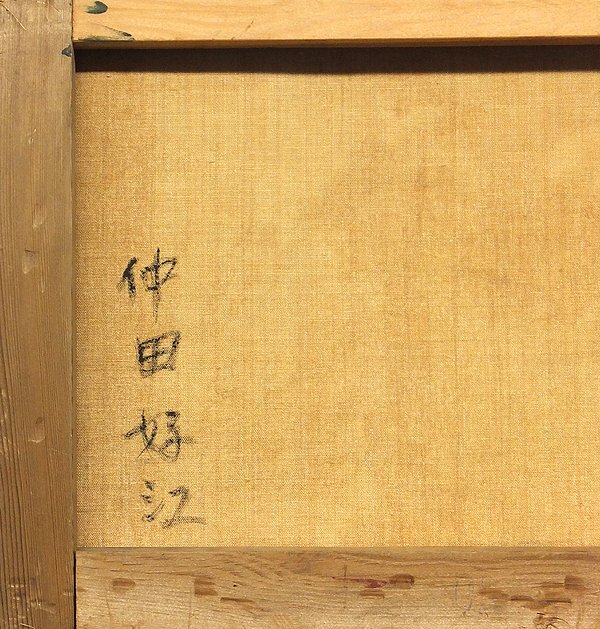 仲田好江